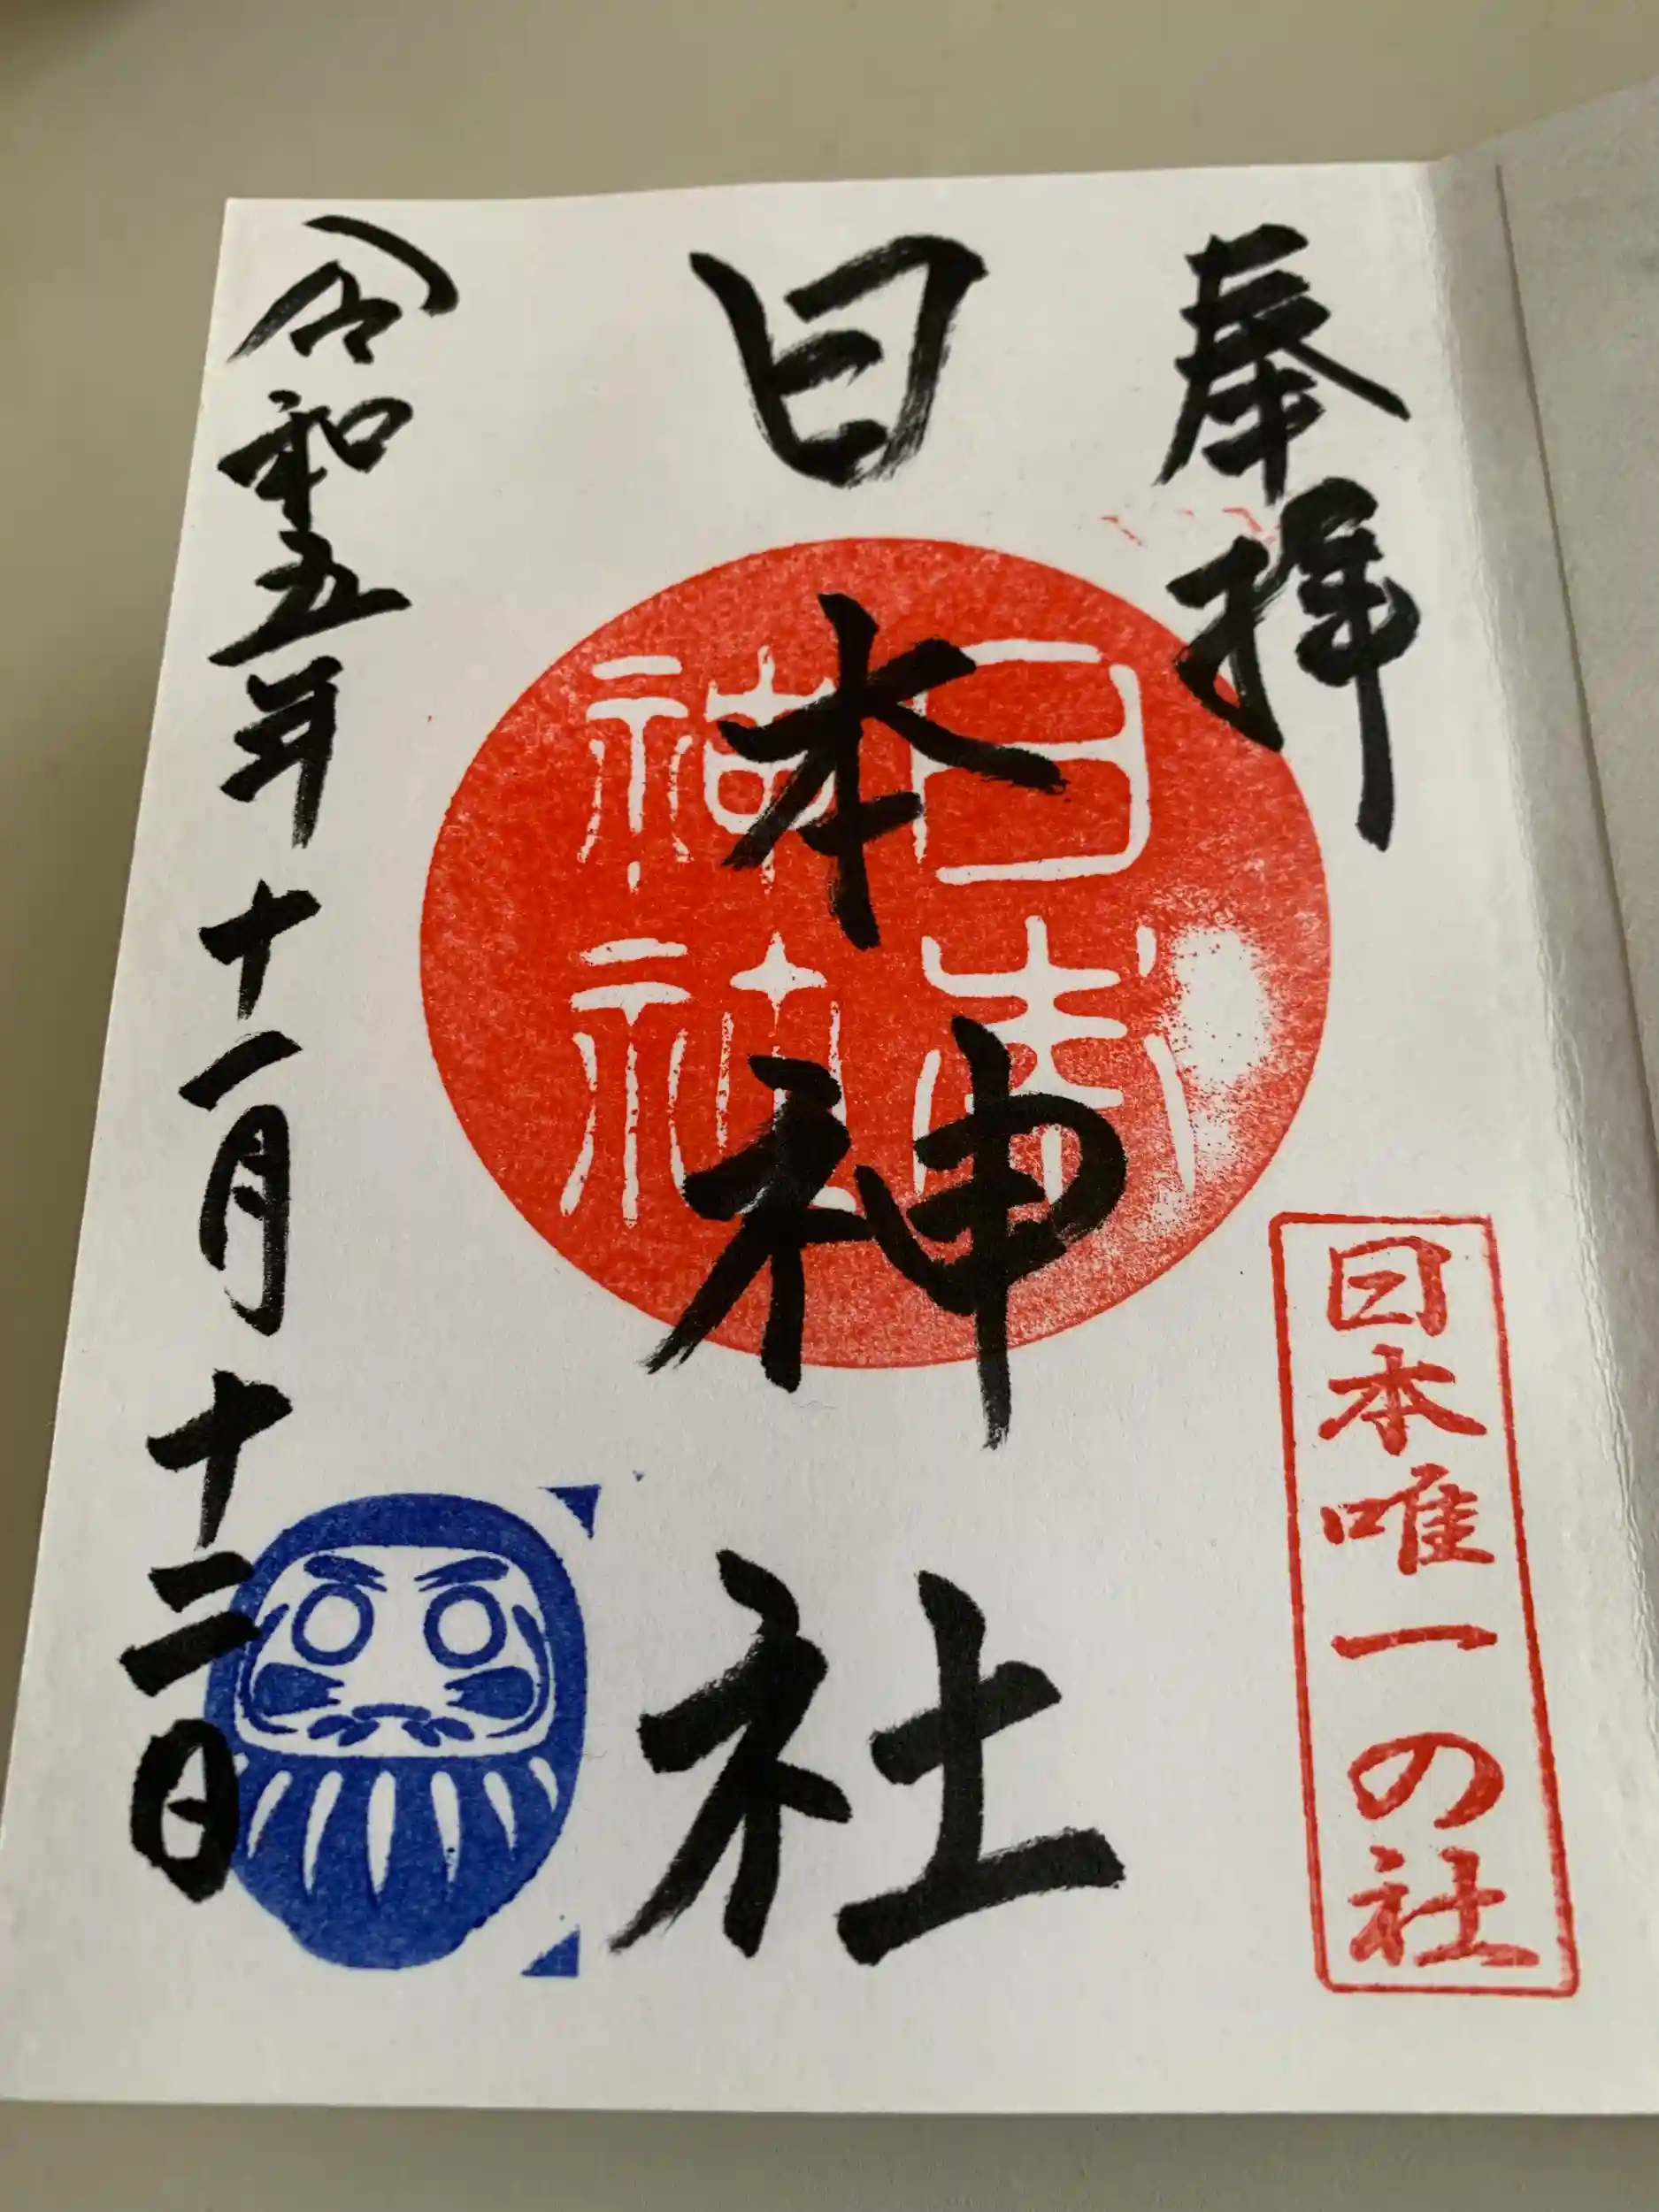 奉拝
日本唯一の社
日本神社
日本
神社
令和五年十一月十二日